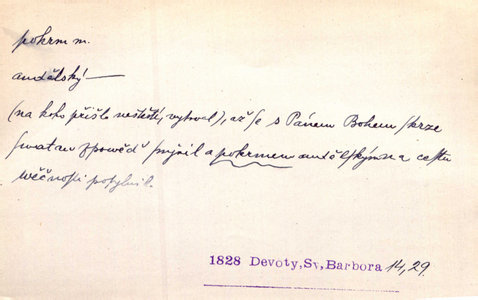 pokrm m.
andělský —
(na koho přišlo neštěstí, vytrval), až se s Pánem Bohem skrze
swatau zpowěď smjřil a pokrmem andělským na cestu
wěčnosti posylnil.
1828 Devoty, Sv, Barbora 14, 29.